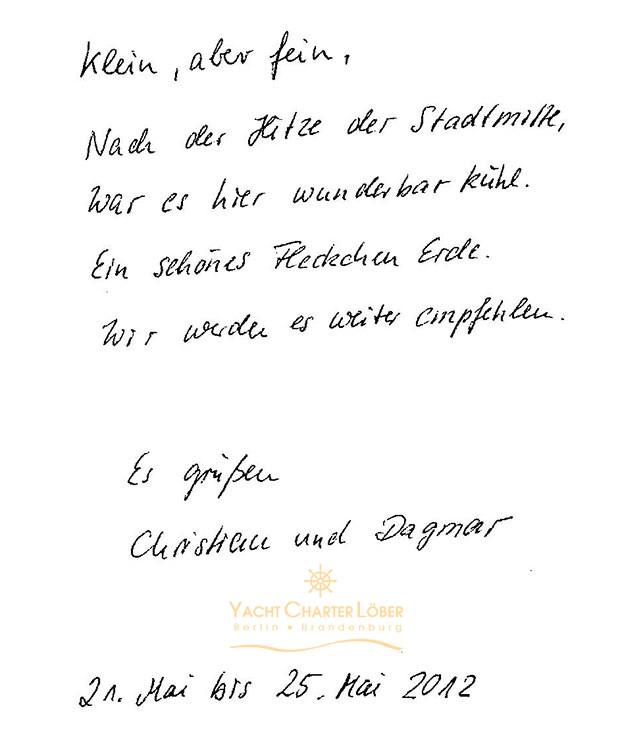 Klein, aber fein,
Nach der Hitze der Stadtmitte,
War es hier wunderbar kühl.
Ein schönes Fleckchen Erde.
Wir werden es weiter empfehlen.
Es grüßen
Christian und Dagmar
YACHT CHARTER LÖBER
Berlin • Brandenburg
21. Mai bis 25. Mai 2012